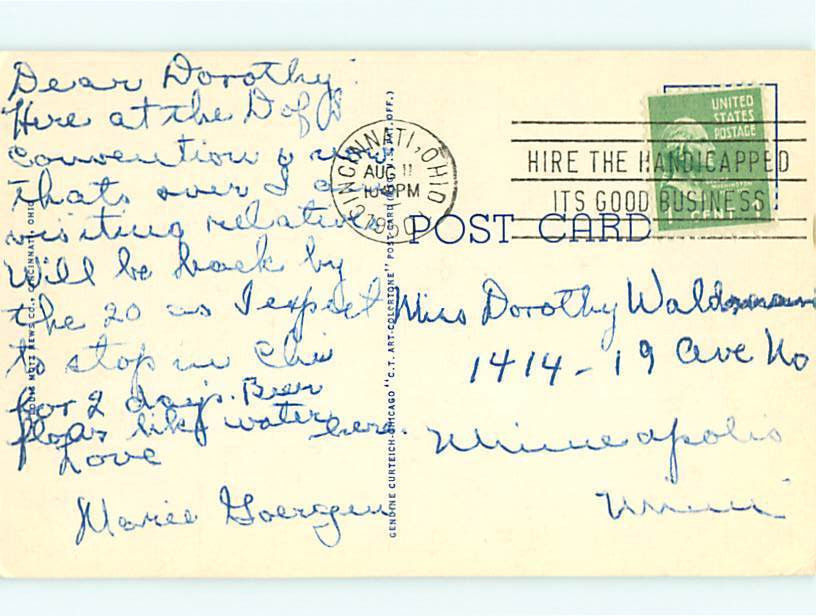 Dear Dorothy:
Here at the D of A
Convention & now
thats over I am
visiting relatives
Will be back by
the 20 as I expect
to stop in Chi
for 2 days. Beer
flows like water
here.
Love
Marie Goergen
CINCINNATI, OHIO
AUG 11
10 PM
1950
HIRE THE HANDICAPPED
ITS GOOD BUSINESS
UNITED
STATES
POSTAGE
WASHINGTON
1 CENT
POST CARD
Miss Dorothy
1414 - 19 Ave No
Minneapolis
Minn
NEWS CO., CINCINNATI, OHIO
GENUINE CURTEICH-CHICAGO "C.T. ART-COLORTONE" POST CARD (REG. U.S. PAT. OFF.)